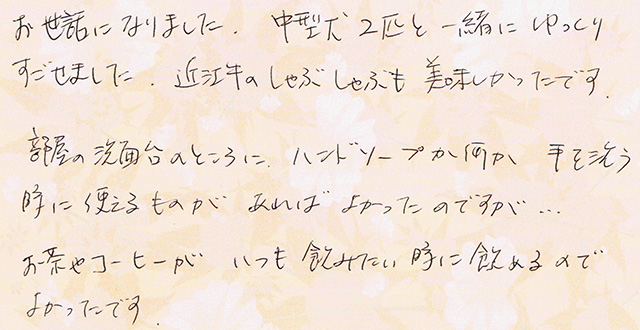 お世話になりました. 中型犬2匹と一緒にゆっくり
すごせました. 近江牛のしゃぶしゃぶも美味しかったです.
部屋の洗面台のところに、ハンドソープか何か 手を洗う
時に使えるものが あれば よかったのですが…
お茶やコーヒーが いつも 飲みたい時に飲めるので
よかったです.